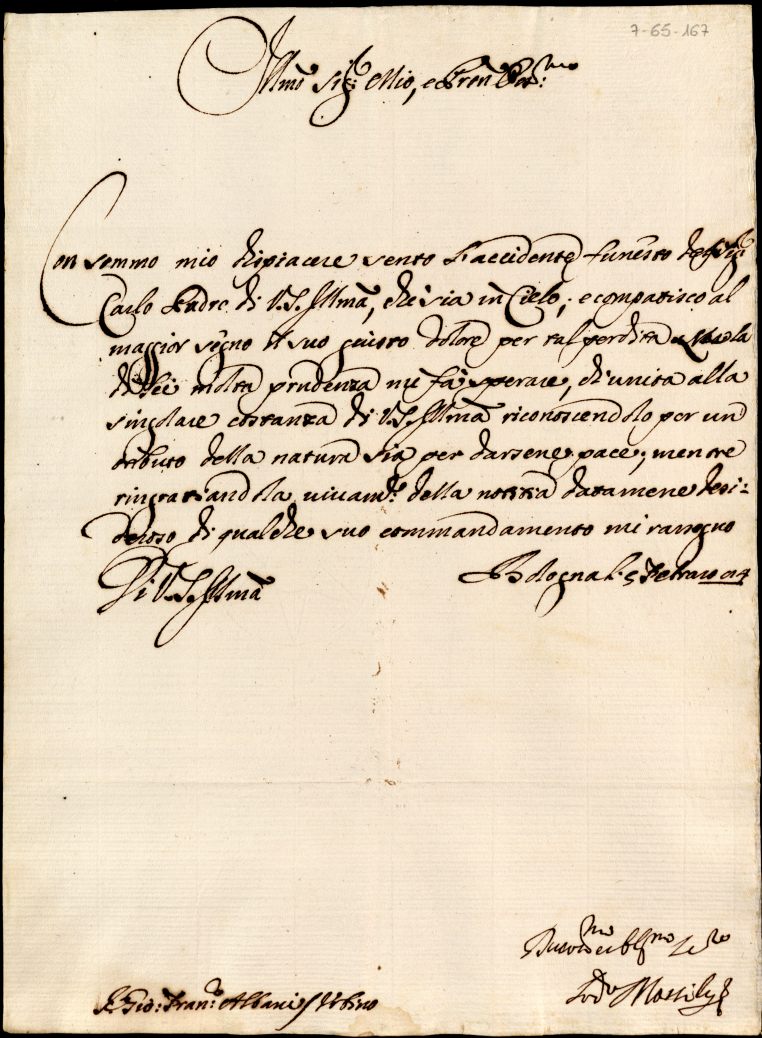 7-65-167
Illmo Sig.r Mio, e Pron Oss.mo
Con sommo mio dispiacere sento l'accidente funesto del Sig.r
Carlo Padre di V.S. Illma, che sia in Cielo; e compatisco al
maggior segno il suo giusto dolore per tal perdita la
di Lei molta prudenza mi fà sperare, ch'unita alla
singolare costanza di V.S. Illma riconoscendolo per un
tributo della natura sia per darsene pace; mentre
ringratiandola vivam.te della notitia datamene desi-
deroso di qualche suo commandamento mi rassegno
Di V.S. Illma
Bologna li 5 Febraro
Devot.mo et obl.mo Se.re
Gio: Fran.co Albani / Urbino